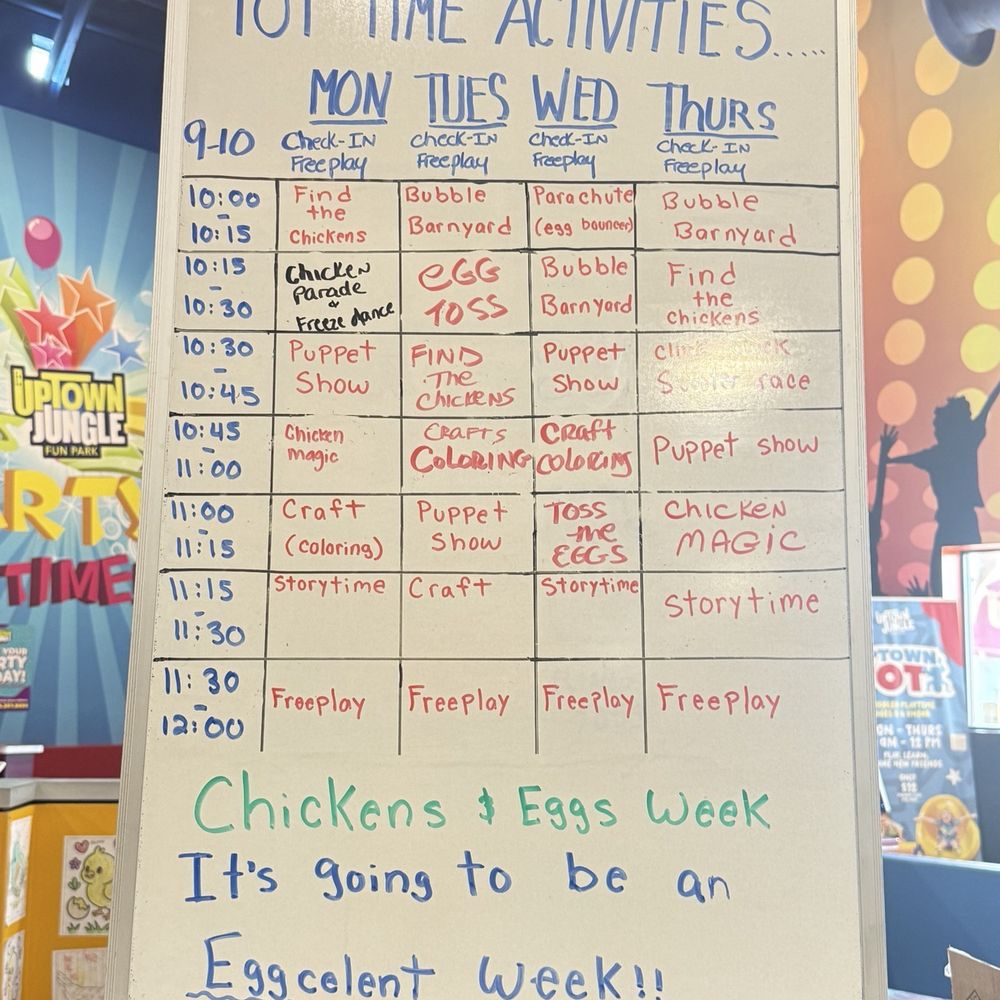 TOT TIME ACTIVITIES.....
MON TUES WED THURS
9-10 Check-IN Freeplay Check-IN Freeplay Check-IN Freeplay Check-IN Freeplay
10:00 - 10:15 Find the Chickens Bubble Barnyard Parachute (egg bouncer) Bubble Barnyard
10:15 - 10:30 Chicken Parade & Freeze dance EGG TOSS Bubble Barnyard Find the chickens
10:30 - 10:45 Puppet Show FIND The CHICKENS Puppet Show race
10:45 - 11:00 Chicken magic CRAFTS COLORING CRAFT COLORING Puppet show
11:00 - 11:15 Craft (coloring) Puppet Show TOSS the EGGS CHICKEN MAGIC
11:15 - 11:30 Storytime Craft Storytime Storytime
11:30 - 12:00 Freeplay Freeplay Freeplay Freeplay
Chickens & Eggs Week
It's going to be an
Eggcelent week!!
UPTOWN
JUNGLE
FUN PARK
TIME